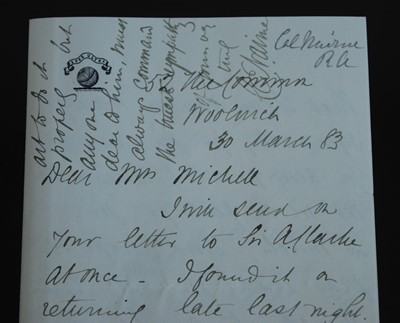 The Common
Woolwich
30 March 83
Dear Mrs Michell
I will send on
Your letter to Sir A. Clarke
at once - I found it on
returning late last night.
art to do it but
properly
anyone
dear to him, must
always command
the truest sympathy
Col
RA